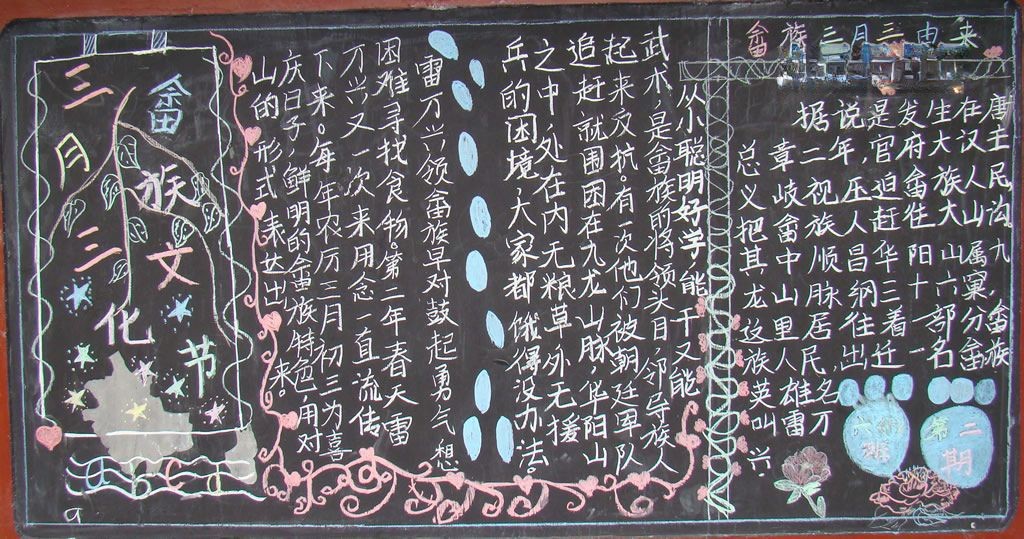 畲族三月三由来
据说是发生在唐
总章二年,官府大汉主
义岐视压迫畲族人民
把畲族人赶住大山沟
其中顺昌华阳山属九
龙山脉纲三十六窠,
这里居往着一部分畲
族人民,出迁一名畲族
英雄名
叫雷万
兴
从小聪明好学能干又能
武术,是畲族前将领头目,邻导族人
起来反抗。有一次他们被朝廷军队
追赶就围困在九龙山脉,华阳山
之中,处在内无粮草,外无援
兵的困境,大家都饿得没办法。
雷万兴领畲族早对鼓起勇气想
困难寻找食物。第二年春天雷
万兴又一次来用念一直流传
下来。每年农历三月初三为喜
庆日子鲜明的畲族特色,用对
山的形式表达出来。
畲族文化节
三月三
第二期